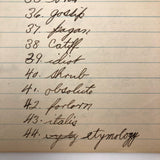 36. gossip
37. pagan
38 Catiff
39. idiot
40. shrub
41. obsolete
42. forlorn
43. italic
44. etymology